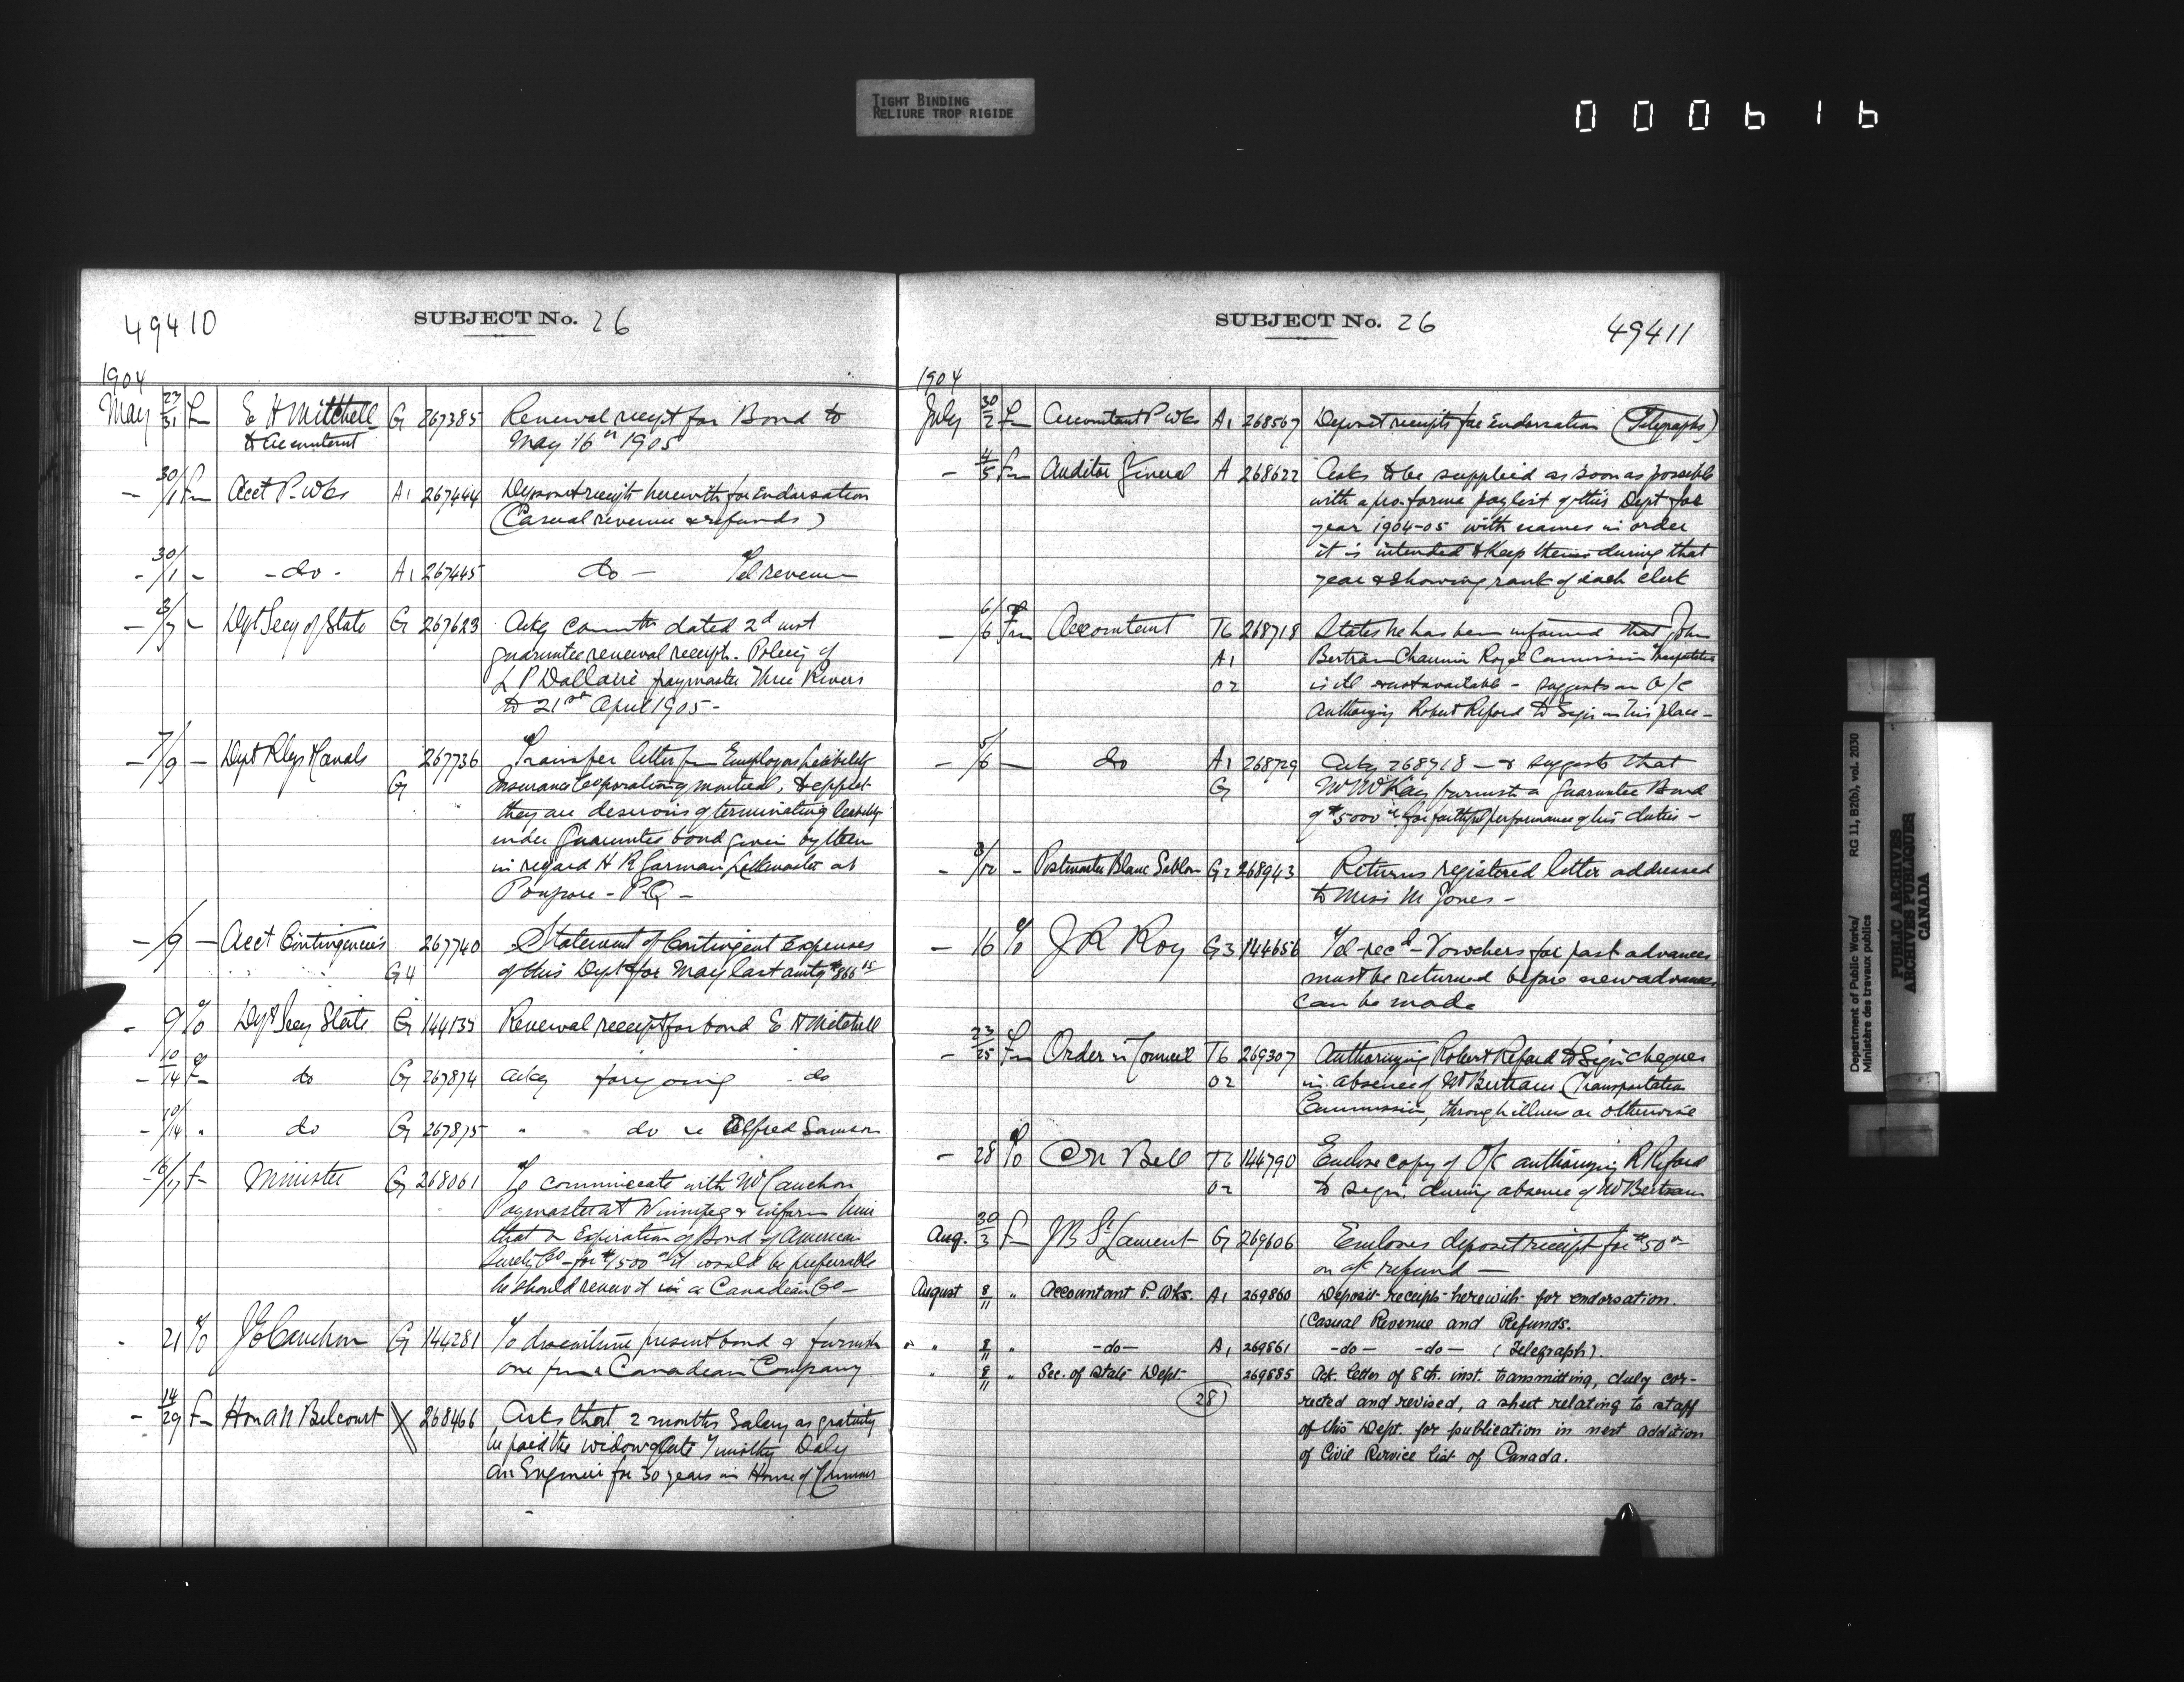 TIGHT BINDING
RELIURE TROP RIGIDE
000616
49410
SUBJECT No. 26
1904
May 27/31 Fm E H Mitchell G 267385 Renewal receipt for Bond to
& Accountant May 16th 1905
- 30/1 Fm Acct P. Wks A1 267444 Deposit receipts herewith for Endorsation
(Casual revenue & refunds)
- 30/1 - - do - A1 267445 do - Tel revenue
- 3/7 - Dept Secy of State G 267623 Ackg comtn dated 2d inst
guarantee renewal receipt. Policy of
L P Dallaire paymaster Three Rivers
to 21st April 1905 -
- 7/9 - Dept Rlys & Canals 267736 Transfer letter fm Employers liability
G Insurance Corporation of Montreal, to effect
they are desirous of terminating liability
under Guarantee bond given by them
in regard H R Garman at
P.Q -
- /9 - Acct Contingencies 267740 Statement of Contingent Expenses
" " G4 of this Dept for May last amtg $866 15
- 9 To Dept Secy State G 144135 Renewal receipt for bond E. H Mitchell
- 10/14 Fm do G 267874 Ackg foregoing - do
- 10/14 " do G 267875 " do re Alfred Samson
- 16/17 Fm Minister G 268061 To communicate with Mr Cauchon
Paymaster at Winnipeg & inform him
that on Expiration of Bond of American
Surety Co - for $1500 it would be preferable
he should renew it in a Canadian Co -
- 21 To J E Cauchon G 144281 To discontinue present bond & furnish
one from a Canadian Company
- 14/29 Fm Hon A N Belcourt X 268466 Asks that 2 months Salary as gratuity
be paid the widow of late Timothy Daly
an Engineer for 30 years in House of Commons
SUBJECT No. 26
49411
1904
July 30/2 Fm Accountant P. Wks A1 268567 Deposit receipts for Endorsation (Telegraphs)
- 4/5 Fm Auditor General A 268622 Asks to be supplied as soon as possible
with a pro. forma paylist of this Dept for
year 1904-05 with names in order
it is intended to keep them during that
year & showing rank of each clerk
- 6/6 Fm Accountant T6 268718 States he has been informed that John
A1 Bertram Chairman Royal Commission Transportation
02 is ill & not available - suggests an O/C
Authorizing Robert Reford to Sign in his place -
- 5/6 - do A1 268729 Ackg 268718 - & suggests that
G Mr McKay furnish a Guarantee Bond
of $5000 for faithful performance of his duties -
- 3/12 - Postmaster Blanc Sablon G2 268943 Returns registered letter addressed
to Miss M Jones -
- 16 To J R Roy G3 144656 Tel - recd - Vouchers for past advances
must be returned before new advances
can be made
- 23/25 Fm Order in Council T6 269307 Authorizing Robert Reford to Sign cheques
02 in absence of Mr Bertram (Transportation
Commission, through illness or otherwise
- 28 To C N Bell T6 144790 Enclose copy of O/C authorizing R Reford
02 to sign. during absence of Mr Bertram
Aug. 30/3 Fm J B St Laurent G 269606 Encloses deposit receipt for $50
on a/c refund -
August 8/11 " Accountant P. Wks. A1 269860 Deposit receipts herewith for endorsation.
(Casual Revenue and Refunds.
" " 8/11 " -do- A1 269861 -do- -do- (Telegraph).
" 8/11 " Sec. of State Dept. 269885 Ack. letter of 8th. inst. transmitting, duly cor-
28) rected and revised, a sheet relating to staff
of this Dept. for publication in next addition
of Civil Service list of Canada.
Department of Public Works/ RG 11, B2(b), vol. 2030
Ministère des travaux publics
PUBLIC ARCHIVES
ARCHIVES PUBLIQUES
CANADA